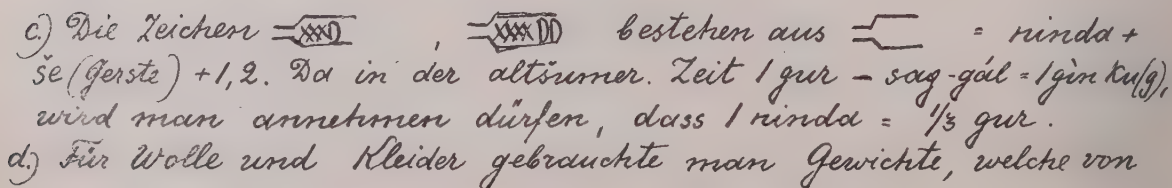 c.) Die Zeichen , bestehen aus = ninda +
še (Gerste) + 1, 2. Da in der altšumer. Zeit 1 gur - sag-gál = 1 gìn ku(g),
wird man annehmen dürfen, dass 1 ninda = 1/3 gur.
d.) Für Wolle und Kleider gebrauchte man Gewichte, welche von